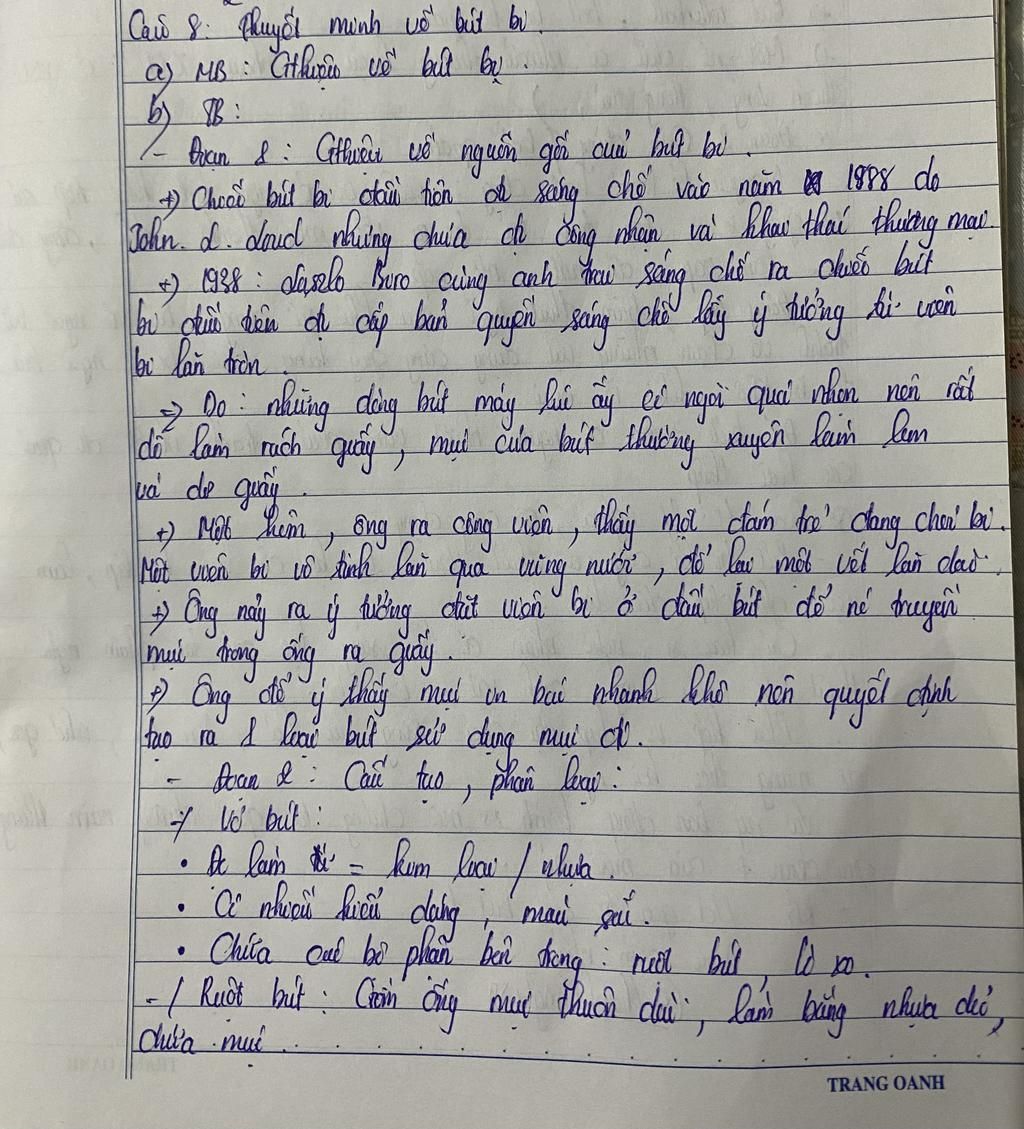 Câu 8: Thuyết minh về bút bi.
a) MB: Gthiệu về bút bi.
b) TB:
- Đoạn 1: Gthiệu về nguồn gốc của bút bi.
+) Chiếc bút bi đầu tiên đc sáng chế vào năm 1888 do
John. L. Loud nhưng chưa đc công nhận và khai thác thương mại.
+) 1938: Laszlo Biro cùng anh trai sáng chế ra chiếc bút
bi đầu tiên đc cấp bản quyền sáng chế lấy ý tưởng từ viên
bi lăn tròn.
=> Do: những dòng bút máy lúc ấy có ngòi quá nhọn nên rất
dễ làm rách giấy, mực của bút thường xuyên làm lem
và dơ giấy.
+) Một hôm, ông ra công viên, thấy một đám trẻ đang chơi bi.
Một viên bi vô tình lăn qua vũng nước, để lại một vết lăn dài.
+) Ông nảy ra ý tưởng đặt viên bi ở đầu bút để nó truyền
mực trong ống ra giấy.
+) Ông để ý thấy mực in báo nhanh khô nên quyết định
tạo ra 1 loại bút sử dụng mực đó.
- Đoạn 2: Cấu tạo, phân loại:
-/ Vỏ bút:
• Đc làm từ = kim loại / nhựa.
• Có nhiều kiểu dáng, màu sắc.
• Chứa các bộ phận bên trong: ruột bút, lò xo.
-/ Ruột bút: Gồm ống mực thuôn dài, làm bằng nhựa dẻo,
chứa mực
TRANG OANH